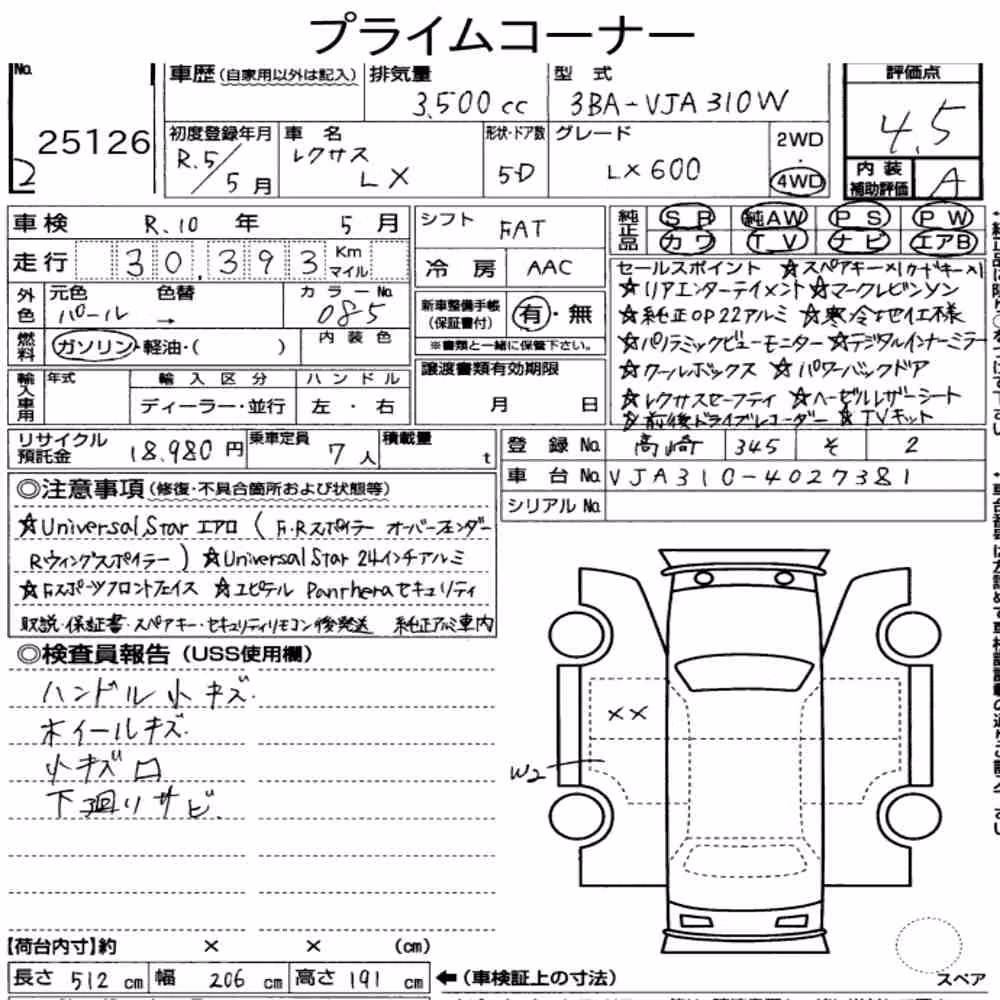 プライムコーナー
No.
25126
2
車歴 (自家用以外は記入)
排気量
3,500 cc
型 式
3BA-VJA310W
評価点
4.5
初度登録年月
R.5/5月
車 名
レクサス
LX
形状・ドア数
5D
グレード
LX600
2WD
・
4WD
内装
補助評価
A
車検 R.10 年 5 月
走行 30.393 Km
マイル
シフト FAT
冷 房 AAC
純正品
SR 純AW PS PW
カワ TV ナビ エアB
外色
元色 色替
パール →
カラーNo.
085
新車整備手帳
(保証書付)
有・無
※書類と一緒に保管下さい。
燃料
ガソリン・軽油・( )
内装色
輸入車用
年式
輸入区分
ハンドル
ディーラー・並行
左・右
譲渡書類有効期限
月 日
セールスポイント ☆スペアキー×1カードキー×1
☆リアエンターテイメント ☆マークレビンソン
☆純正OP22アルミ ☆寒冷地仕様
☆パノラミックビューモニター ☆デジタルインナーミラー
☆クールボックス ☆パワーバックドア
☆レクサスセーフティ ☆ヘーゼルレザーシート
☆前後ドライブレコーダー ☆TVキット
リサイクル
預託金
18,980 円
乗車定員
7 人
積載量
t
登 録 No. 高崎 345 そ 2
車 台 No. VJA310-4027381
シリアル No.
◎注意事項 (修復・不具合箇所および状態等)
☆UniversalStar エアロ ( F.Rスポイラー オーバーフェンダー
Rウィングスポイラー ) ☆UniversalStar 24インチアルミ
☆Fスポーツフロントフェイス ☆ユピテル Pantheraセキュリティ
取説・保証書・スペアキー・セキュリティリモコン後発送 純正アルミ車内
◎検査員報告 (USS使用欄)
ハンドル小キズ.
ホイールキズ.
小キズ口
下廻りサビ.
××
W2
【荷台内寸】約 × × (cm)
長さ 512 cm 幅 206 cm 高さ 191 cm
←(車検証上の寸法)
スペア